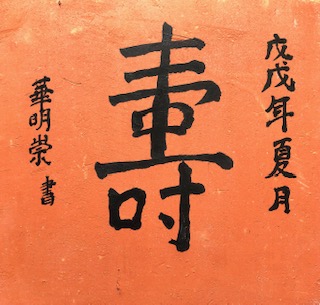 戊戌年夏月
壽
華明崇書